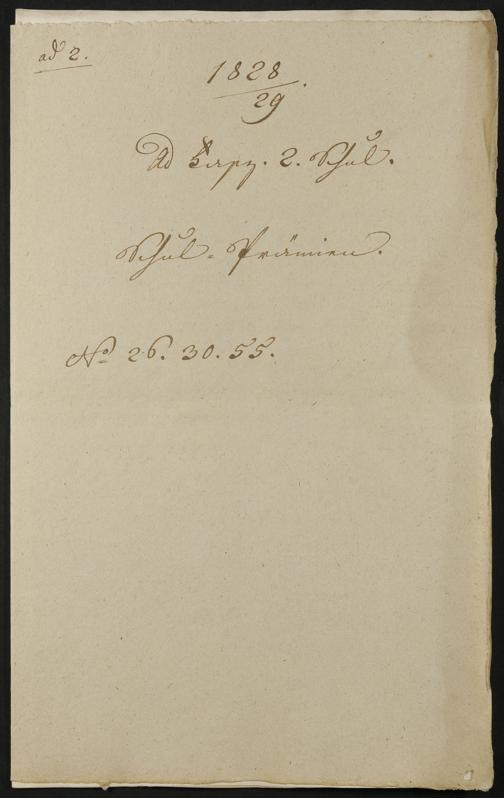 ad 2.
1828
29.
Ad 2. Schul.
Schul-Prämien.
No 26. 30. 55.